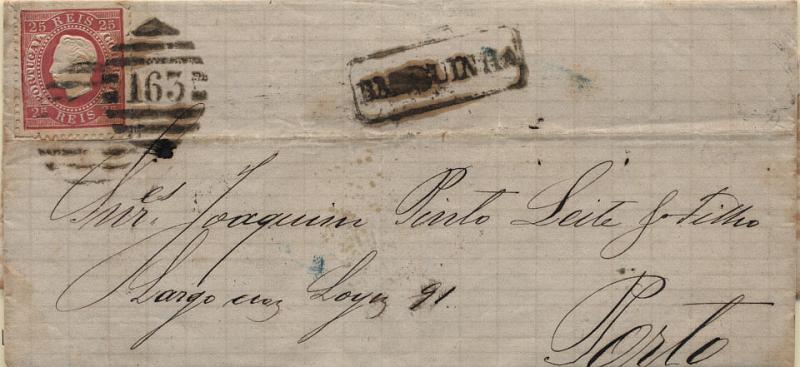 25 REIS 25
PORTUGAL CORREIO
25 REIS
163
Snr.es Joaquim Pinto Leite & Filho
Largo dos Loyos 91.
Porto